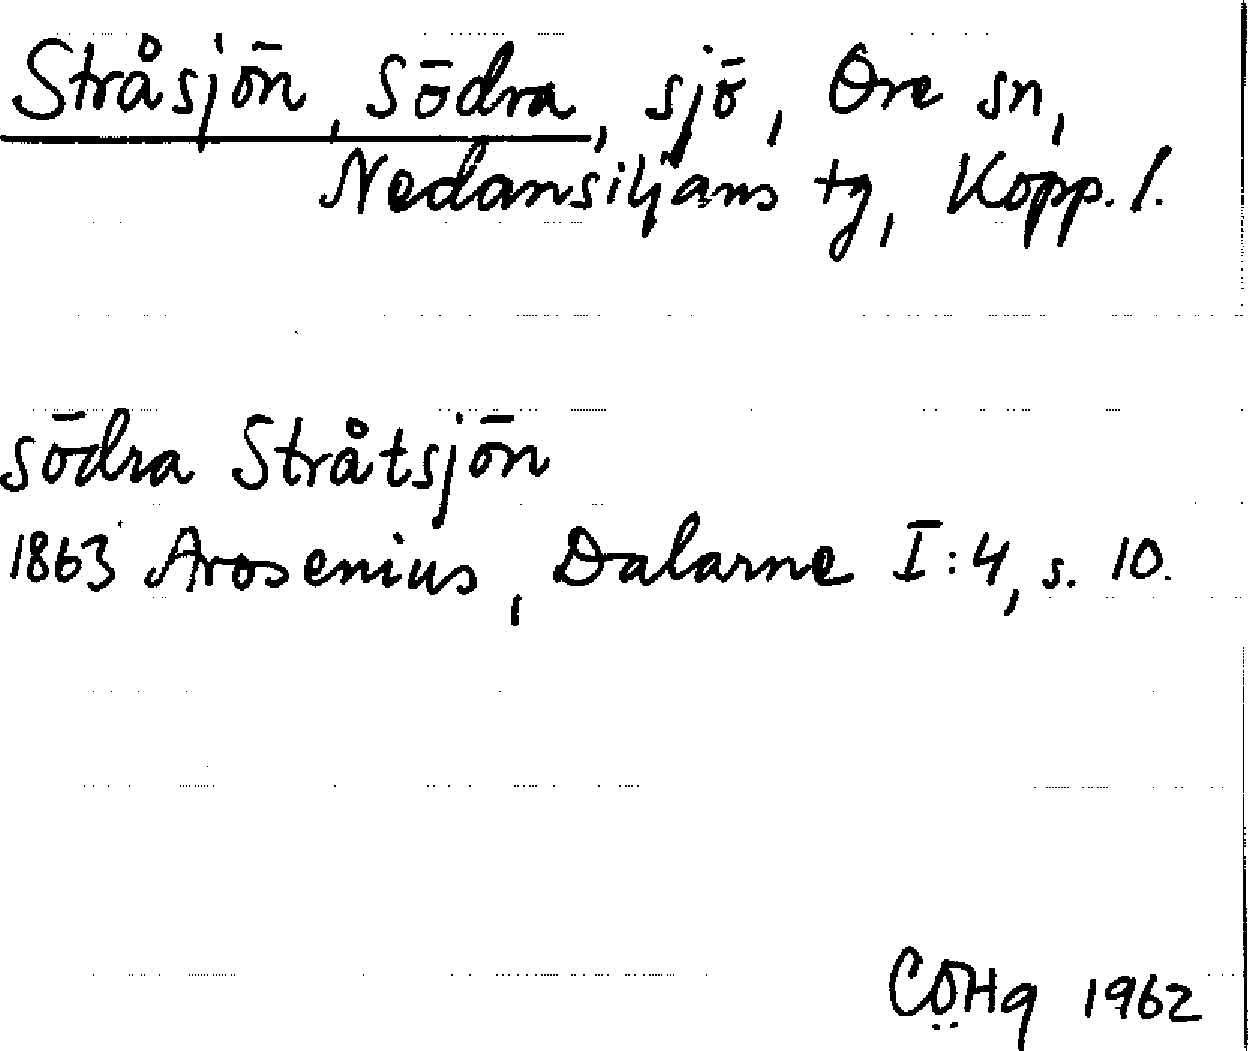 Stråsjön, Södra, sjö, Ore sn,
Nedansiljans tg, Kopp. l.
södra Stråtsjön
1863 Arosenius, Dalarne I:4, s. 10.
COHg 1962